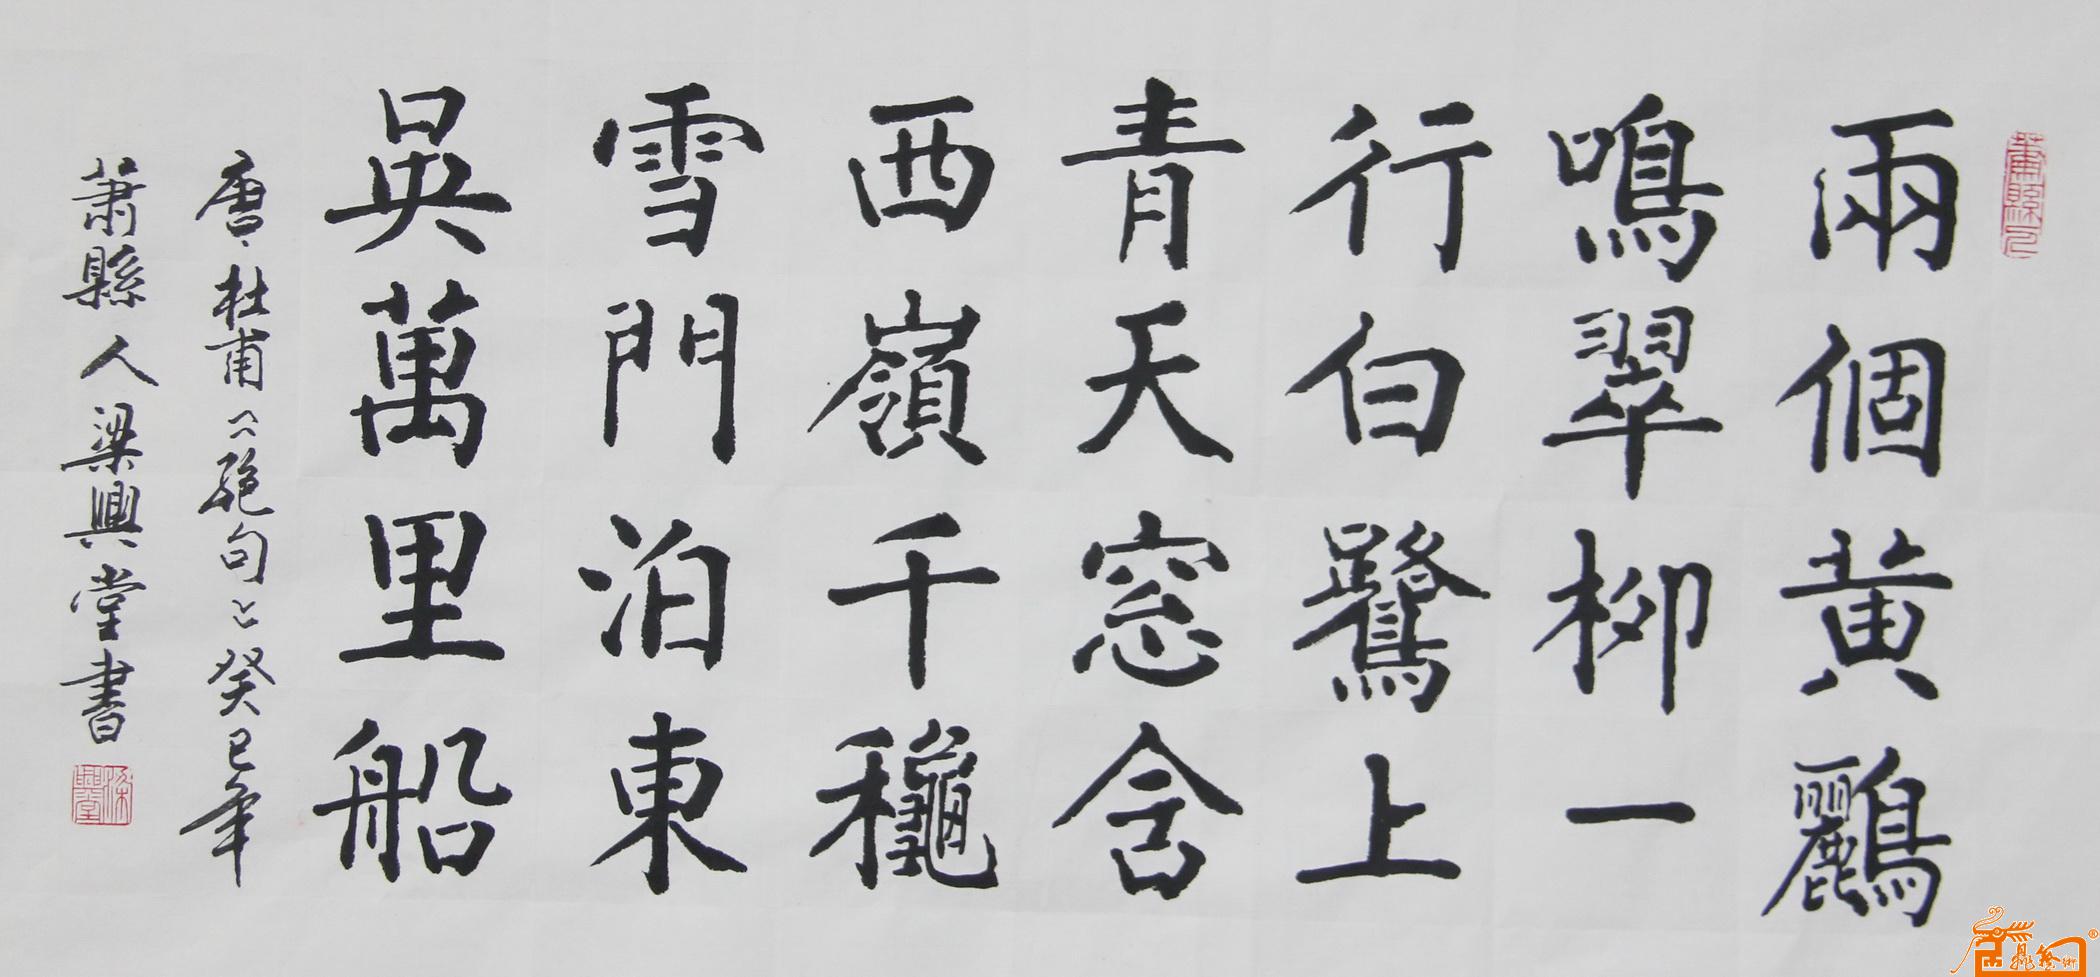 蕭縣人
兩個黃鸝
鳴翠柳一
行白鷺上
青天窓含
西嶺千龝
雪門泊東
吳萬里船
唐、杜甫《絕句》癸巳年
蕭縣人梁興堂書
梁興堂